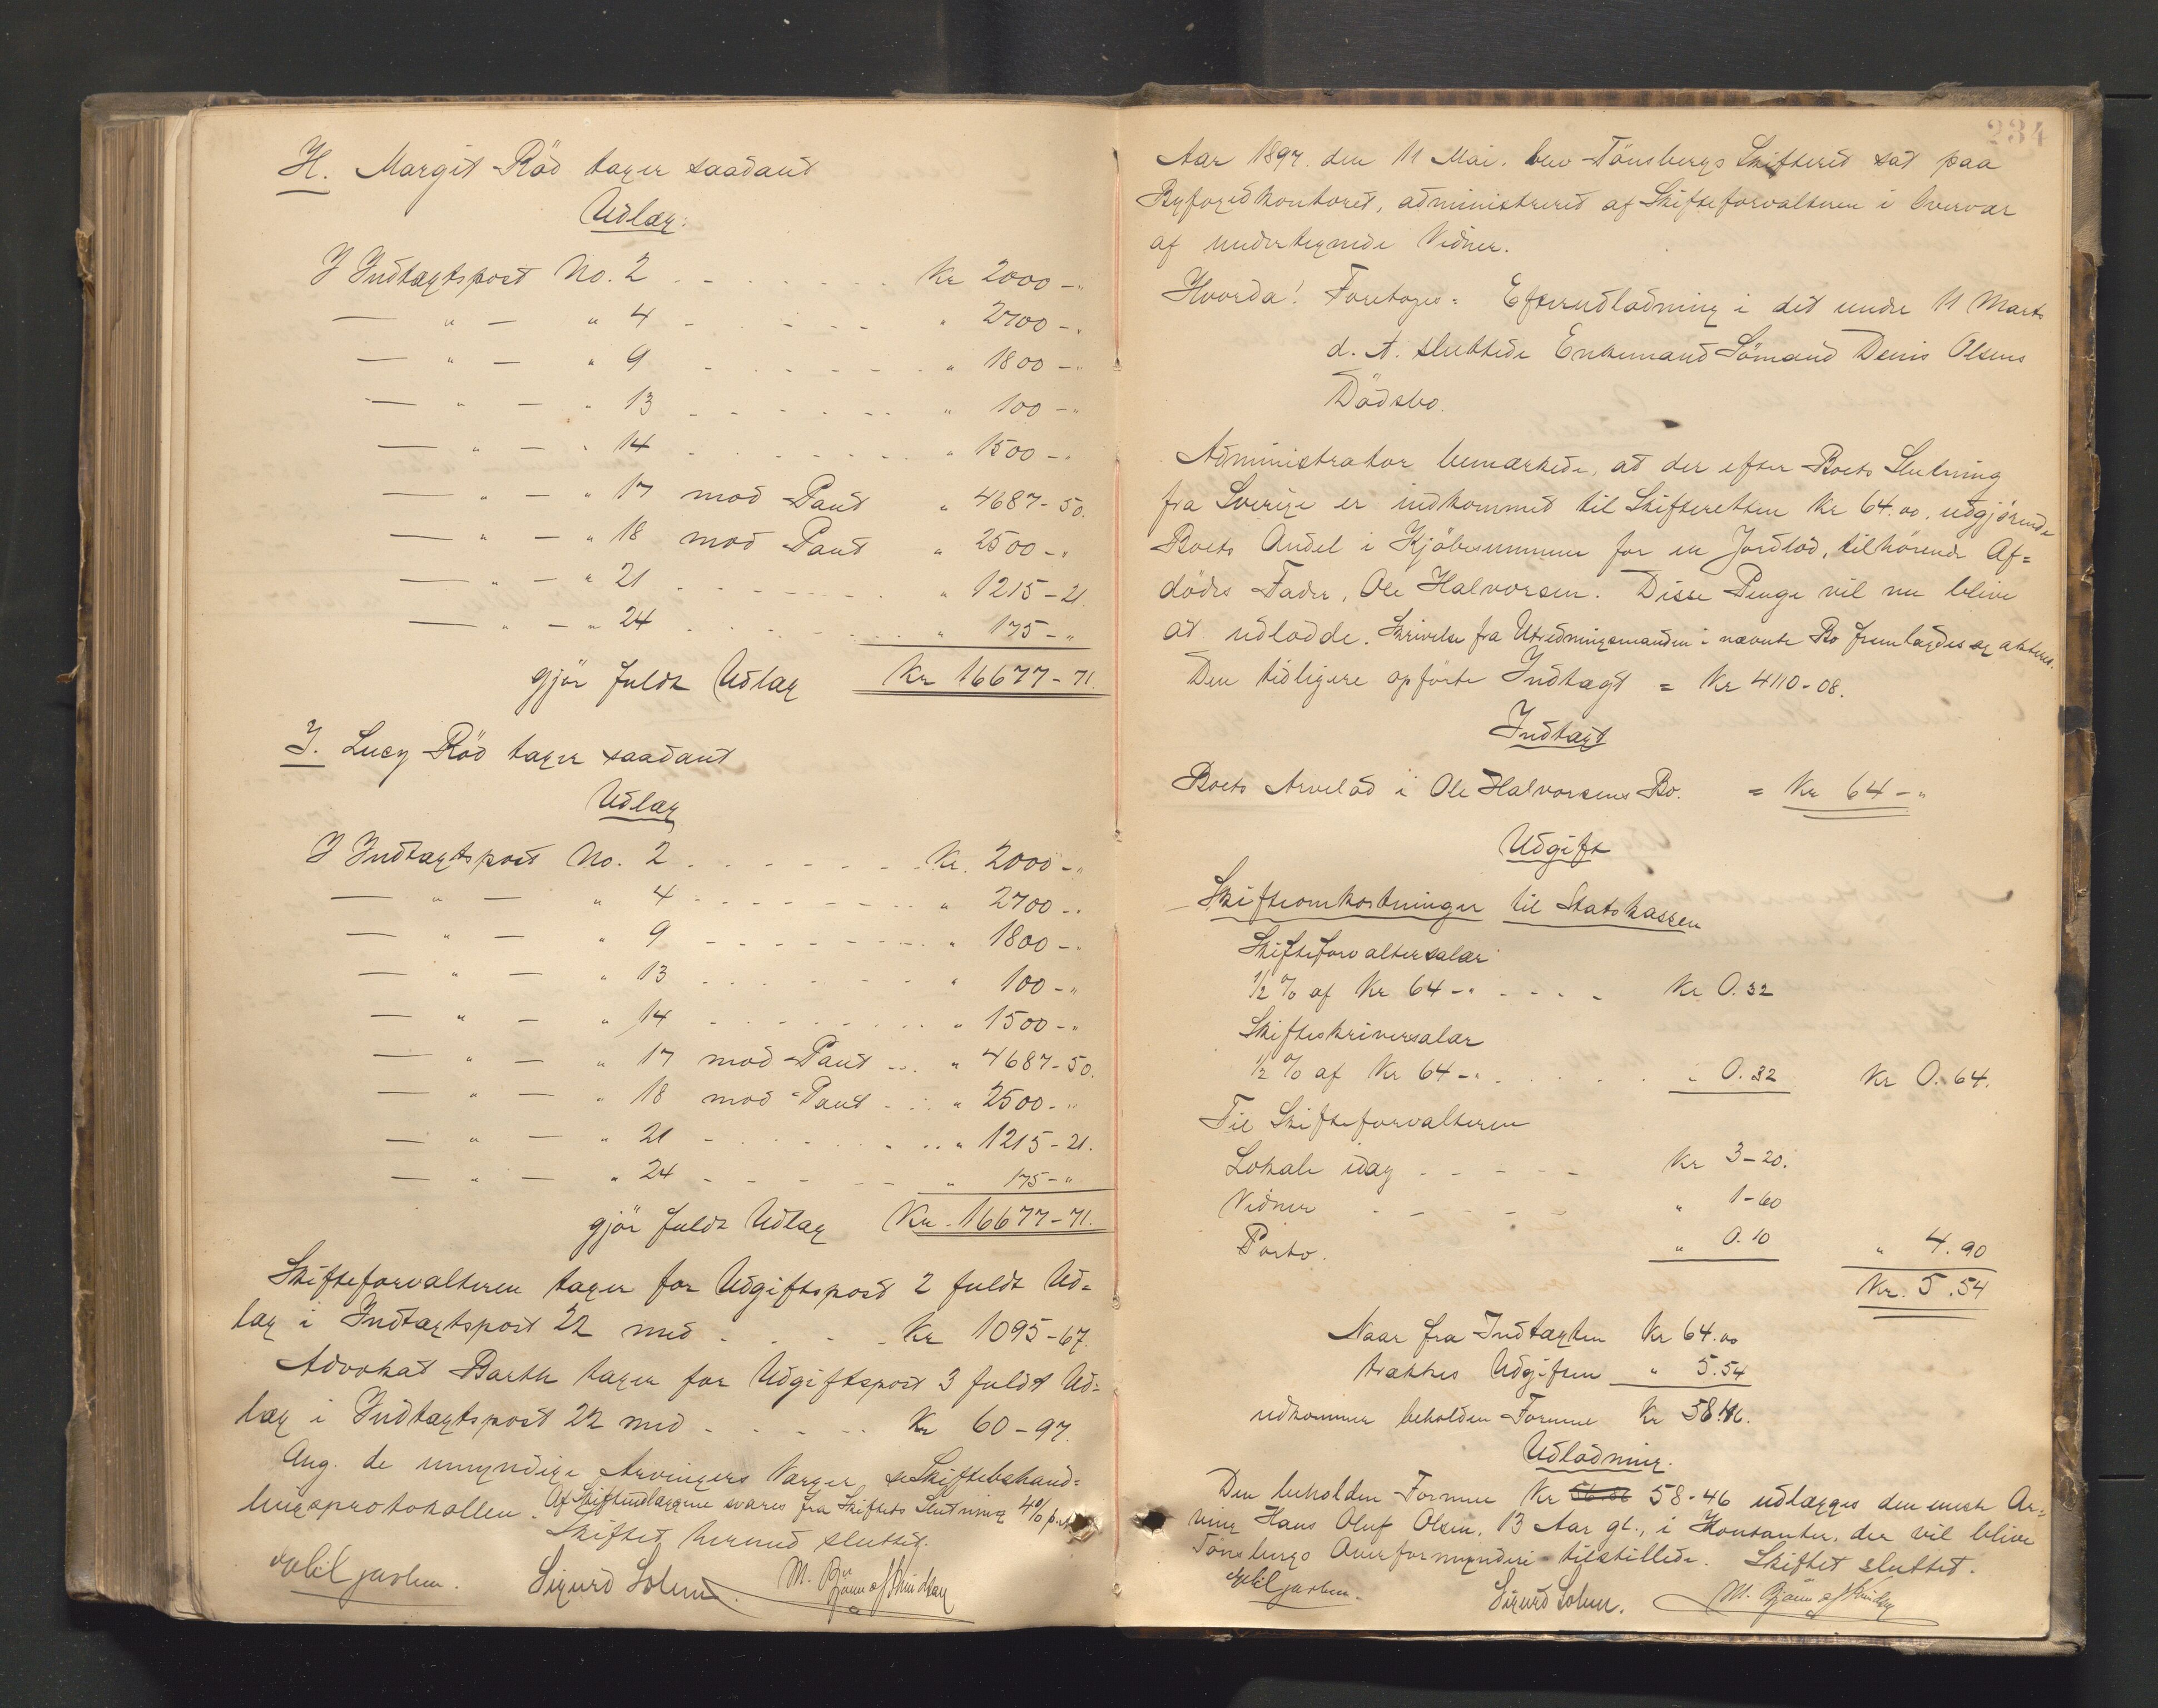 H. Margit Röd tager saadant
Udlæg:
I Indtægtspost No. 2 . . . . . . . Kr 2000 - "
— " — " 4 - . . . . . " 2700 - "
— " — " 9 . . . . . . " 1800 - "
— " — " 13 . . . . . . " 100 - "
— " — " 14 . . . . . . " 1500 - "
— " — " 17 mod Pant " 4687 - 50.
— " — " 18 mod Pant " 2500 - "
— " — " 21 . . . . . . " 1215 - 21.
— " — " 24 . . . . . . " 175 - "
gjör fuldt Udlæg Kr 16677 - 71.
I. Lucy Röd tager saadant
Udlæg
I Indtægtspost No. 2 . . . . . . . Kr. 2000 - "
— " — " 4 . . . . . . " 2700 - "
— " — " 9 . . . . . . " 1800 - "
— " — " 13 . . . . . . " 100 - "
— " — " 14 . . . . . . " 1500 - "
— " — " 17 mod Pant ... " 4687 - 50.
— " — " 18 mod Pant . . . " 2500 - "
— " — " 21 . . . . . . " 1215 - 21.
— " — " 24 - - - - - " 175 - "
gjör fuldt Udlæg Kr. 16677 - 71.
Skifteforvalteren tager for Udgiftspost 2 fuldt Ud=
læg i Indtægtspost 22 med . . . . Kr 1095 - 67.
Advokat Barth tager for Udgiftspost 3 fuldt Ud=
læg i Indtægtspost 22 med . . . . . Kr 60 - 97.
Ang. de umyndige Arvingers Værger se Skiftebehand=
lingsprotokollen. Af Skifteudlæggene svares fra Skiftets Slutning 4% p.
Skiftet hermed sluttet.
Sigurd Solum. M.
234
Aar 1897 den 11 Mai. blev Tönsbergs Skifteret sat paa
Byfogedkontoret, administreret af Skifteforvalteren i Overvær
af undertegnede Vidner.
Hvorda! Foretoges = Efterudlodning i det under 11 Marts
d. A. sluttede Enkemand Sömand Denis Olsens
Dödsbo.
Administrator bemærkede, at der efter Boets Slutning
fra Sverige er indkommet til Skifteretten Kr 64.00, udgjörende
Boets Andel i Kjöbesummen for en Jordlod, tilhörende Af=
dödes Fader, Ole Halvorsen. Disse Penge vil nu blive
at udlodde. Skrivelse fra Utredningsmanden i nævnte Bo fremlagdes og akteret.
Den tidligere opförte Indtægt = Kr 4110-08.
Indtægt
Boets Arvelod i Ole Halvorsens Bo. = Kr 64 - "
Udgift
Skifteomkostninger til Statskassen
Skifteforvaltersalær
1/2 % af Kr 64 - " . . . . Kr 0.32
Skifteskriversalær
1/2 % af Kr 64 - " . . . . " 0.32 Kr 0.64.
Til Skifteforvalteren
Lokale idag - - - - - Kr 3-20.
Vidner . - - - - " 1-60
Porto. " 0.10 " 4.90
Kr. 5.54
Naar fra Indtægten Kr 64.00
trækkes Udgiften " 5.54
udkommer beholden Formue Kr 58.46.
Udlodning.
Den beholdne Formue Kr 58-46 udlægges den eneste Ar=
ving Hans Oluf Olsen, 13 Aar gl., i Kontanter, der vil blive
Tönsbergs Overformynderi tilstillede. Skiftet sluttet.
Sigurd Solum. M.